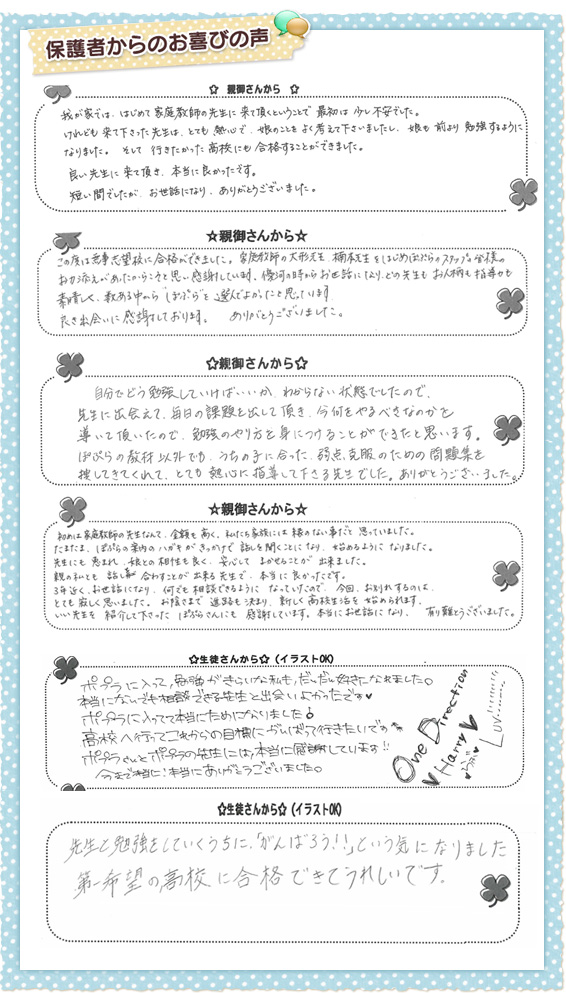 保護者からのお喜びの声
☆ 親御さんから ☆
我が家では、はじめて家庭教師の先生に来て頂くということで最初は少し不安でした。
けれども来て下さった先生は、とても熱心で、娘のことをよく考えて下さいましたし、娘も前より勉強するように
なりました。そして行きたかった高校にも合格することができました。
良い先生に来て頂き、本当に良かったです。
短い間でしたが、お世話になり、ありがとうございました。
☆親御さんから☆
この度は無事志望校に合格ができました。家庭教師の大形先生、楠本先生をはじめぽぷらのスタッフの皆様の
お力添えがあったからこそと思い感謝しています。優河の時からお世話になり、どの先生もお人柄も指導力も
素晴しく、数ある中から"ぽぷら"を選んでよかったと思っています
良き出会いに感謝しております。 ありがとうございました。
☆親御さんから☆
自分でどう勉強していけばいいか、わからない状態でしたので、
先生に出会えて、毎日の課題を出して頂き、今何をやるべきなのかを
導いて頂いたので、勉強のやり方を身につけることができたと思います。
ぽぷらの教材以外でも、うちの子に合った、弱点克服のための問題集を
探してきてくれて、とても熱心に指導して下さる先生でした。ありがとうございました。
☆親御さんから☆
初めは家庭教師の先生なんて、金額も高く、私たち家族には縁のない事だと思っていました。
たまたま、ぽぷらの案内のハガキがきっかけで話しを聞くことになり、始めるようになりました。
先生にも恵まれ、娘との相性も良く、安心してまかせることが出来ました。
親の私とも話し合わすことが出来る先生で、本当に良かったです。
3年近く、お世話になり、何でも相談できるようになっていたので、今回、お別れするのは、
とても寂しく思いました。お陰さまで進路も決まり、新しく高校生活を始められます。
いい先生を紹介して下さったぽぷらさんにも感謝しています。本当にお世話になり、有り難とうございました。
☆生徒さんから☆（イラストOK）
ポプラに入って、勉強がきらいな私も、だんだん好きになれました。
本当になんでも相談できる先生と出会いよかったです♥
ポプラに入って本当にためになりました♪
高校へ行ってこれからの目標にがんばって行きたいです
ポプラさんとポプラの先生には、本当に感謝しています!!
今まで本当に!本当にありがとうございました。
One Direction
♥Harry♥
Luv
☆生徒さんから☆（イラストOK）
先生と勉強をしていくうちに、「がんばろう!!」という気になりました
第一希望の高校に合格できてうれしいです。